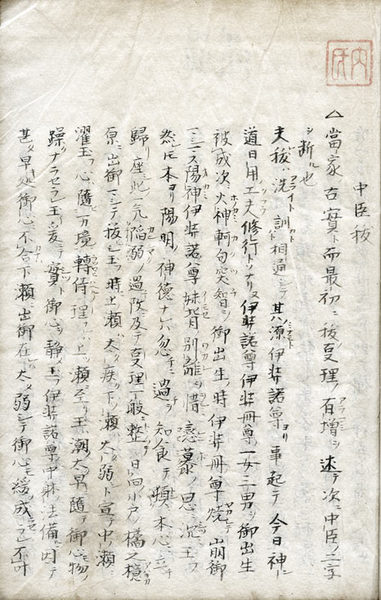 中臣祓
△當家古實ニ而最初ニ祓夏理ノ有増ヲ述テ次ニ中臣ノ二字
ヲ断ル也
夫祓ハ洗ト訓相通ニテ其源伊弉諾尊ヨリ事起テ今日神
道日用工夫修行トソナリヌ伊弉諾尊伊弉冊尊一女三男ヲ御出生
被成次ニ火神軻句突智ヲ御出生ノ時伊弉冊尊焼レ崩御
マシマス陽神伊弉諾尊妹背別離ヲ惜ミ恋慕ノ思ニ沈玉フ
然レ𪜈本ヨリ陽明ノ神徳ナレハ忽ニ過ヲ知食テ頓テ本心ニ立
歸座此ノ穴陥溺ノ過改及テ夏理ヲ厳ニ整ヘ日向小戸ノ橘之檍
原ニ出御マシマシテ祓玉フ時上瀬ハ太タ疾下ノ瀬ハ太タ弱シト宣テ中ノ瀬ニ
濯玉フ心随万境轉倚理ニテ上ノ瀬ニ至リ玉ハ潮太早随テ御心物
躁ナラセ玉フ爰ニテ實ト御心ヲ静玉ヘハ伊弉諾尊中ノ ... 法備ニ因テ
甚タ早ハ御心ニ不合下瀬ニ出御在ハ太タ弱シテ御心モ緩成是モ不叶